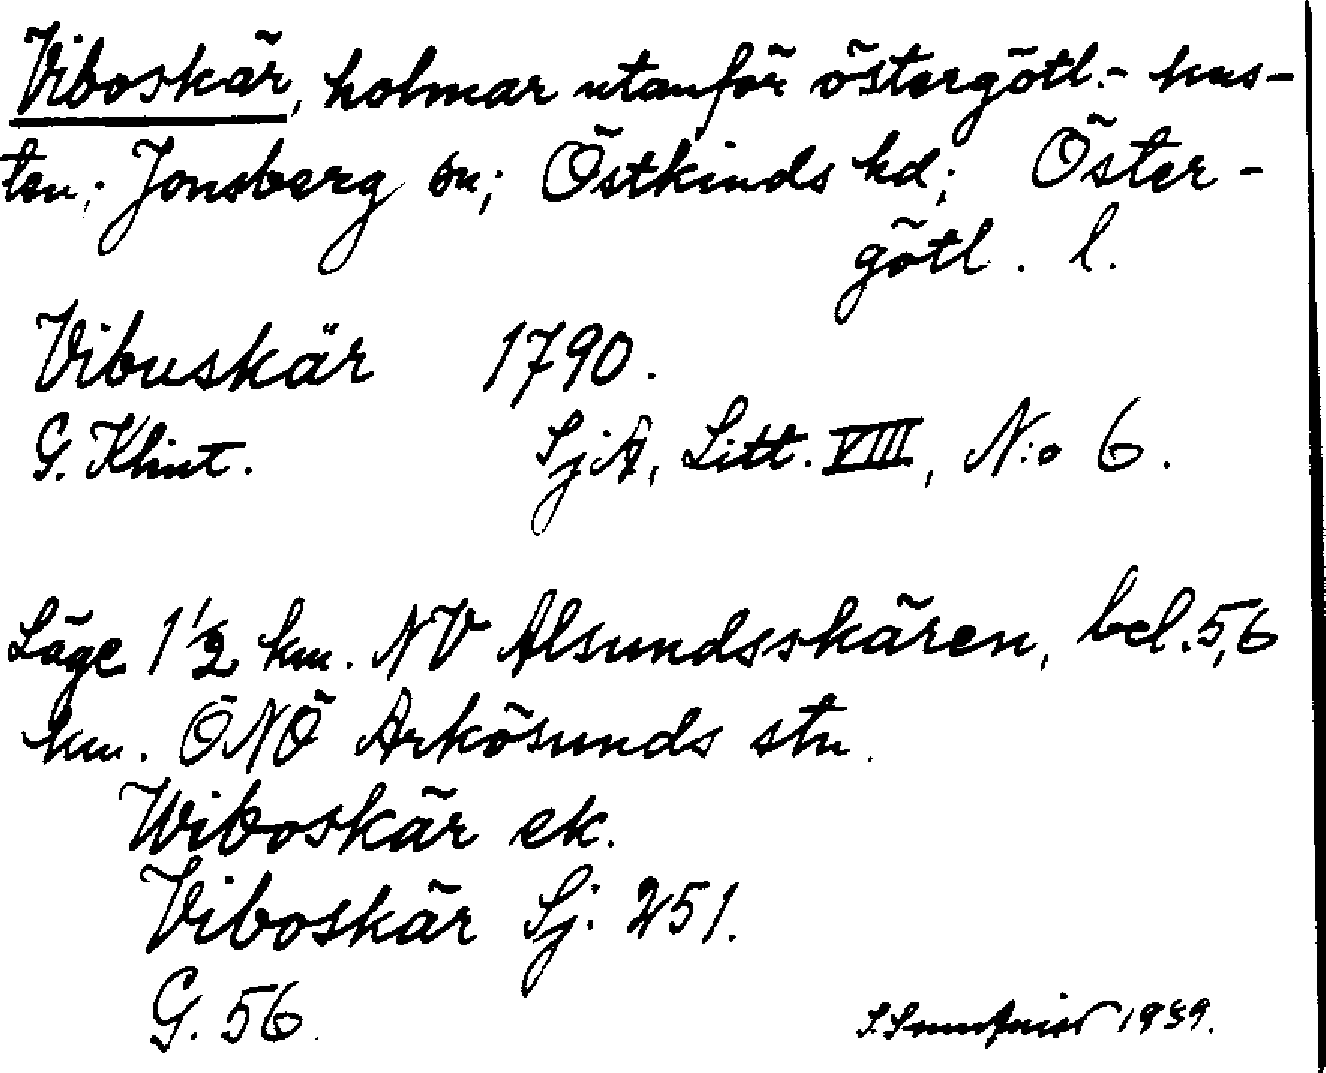 Viboskär, holmar utanför östergötl.- kus-
ten; Jonsberg sn; Östkinds hd; Öster-
götl. l.
Vibuskär 1790.
G. Klint. SjA, Litt. VIII, N:o 6.
Läge 1 1/2 km. NV Alsundsskären, bel. 5,6
km. ÖNÖ Arkösunds stn.
Wiboskär ek.
Viboskär Sj: 251.
G. 56.
1939.